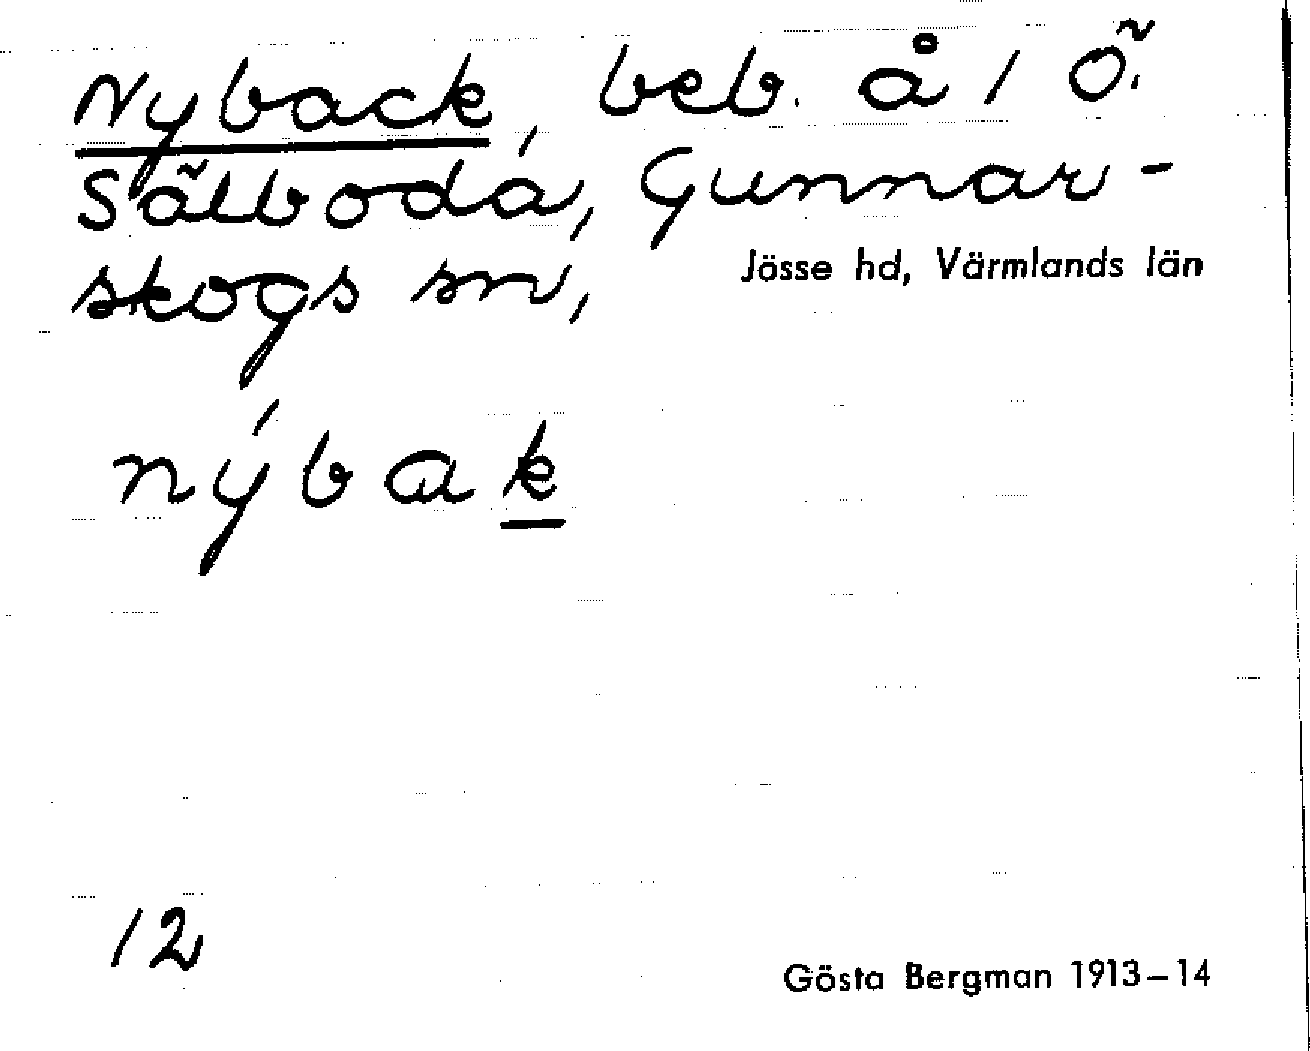 Nyback, beb. å 1 Ö.
Sälboda, Gunnar-
skogs sn,
Jösse hd, Värmlands län
nýbak
12
Gösta Bergman 1913–14